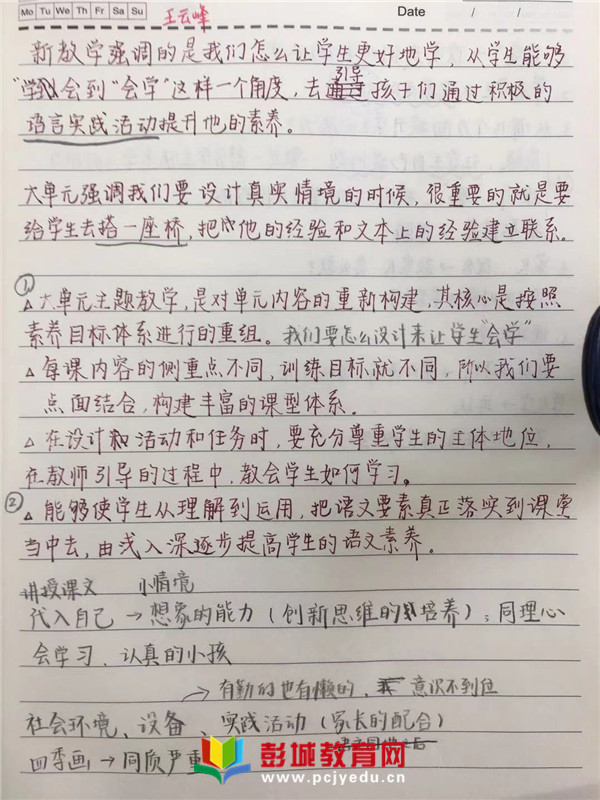 Mo Tu We Th Fr Sa Su
王云峰
Date / /
新教学强调的是我们怎么让学生更好地学，从学生能够
"学会到"会学"这样一个角度，去引导孩子们通过积极的
语言实践活动提升他的素养。
大单元强调我们要设计真实情境的时候，很重要的就是要
给学生去搭一座桥，把他的经验和文本上的经验建立联系。
①
△大单元主题教学，是对单元内容的重新构建，其核心是按照
素养目标体系进行的重组。我们要怎么设计来让学生"会学"
△每课内容的侧重点不同，训练目标就不同，所以我们要
点面结合，构建丰富的课型体系。
△在设计活动和任务时，要充分尊重学生的主体地位，
在教师引导的过程中，教会学生如何学习。
②△能够使学生从理解到运用，把语文要素真正落实到课堂
当中去，由浅入深逐步提高学生的语文素养。
讲授课文 小情境
代入自己→想象的能力（创新思维的培养）；同理心
会学习、认真的小孩
→有勤的也有懒的，意识不到位
社会环境、设备、实践活动（家长的配合）
四季画→同质严重
彭城教育网
www.pcjyedu.cn